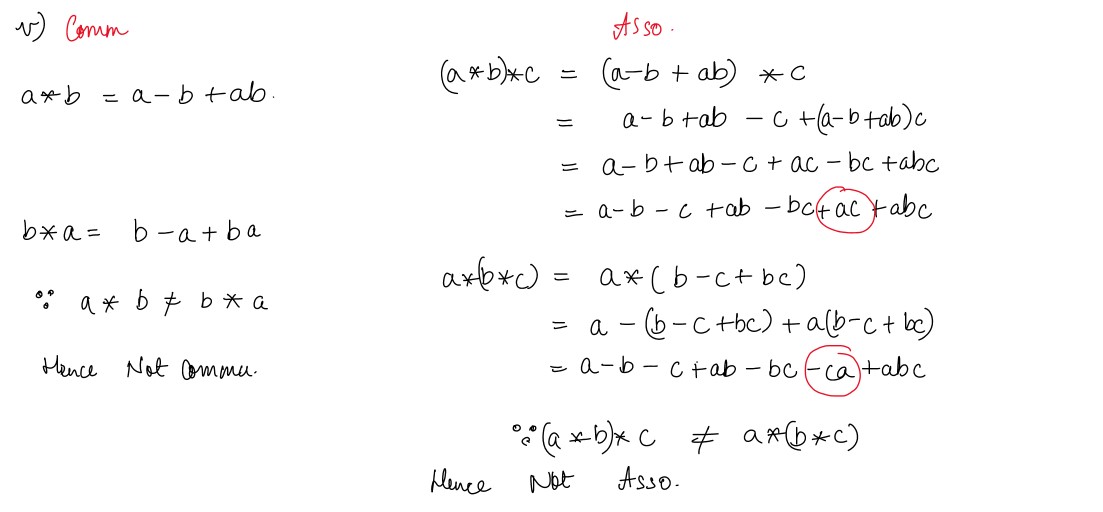 v) Comm
a*b = a-b+ab.
b*a = b-a+ba
∵ a * b ≠ b * a
Hence Not Commu.
Asso.
(a*b)*c = (a-b+ab) *c
= a-b+ab -c+(a-b+ab)c
= a-b+ab-c+ac-bc+abc
= a-b-c+ab-bc+ac+abc
a*(b*c) = a*(b-c+bc)
= a-(b-c+bc)+a(b-c+bc)
= a-b-c+ab-bc-ca+abc
∵(a*b)*c ≠ a*(b*c)
Hence Not Asso.